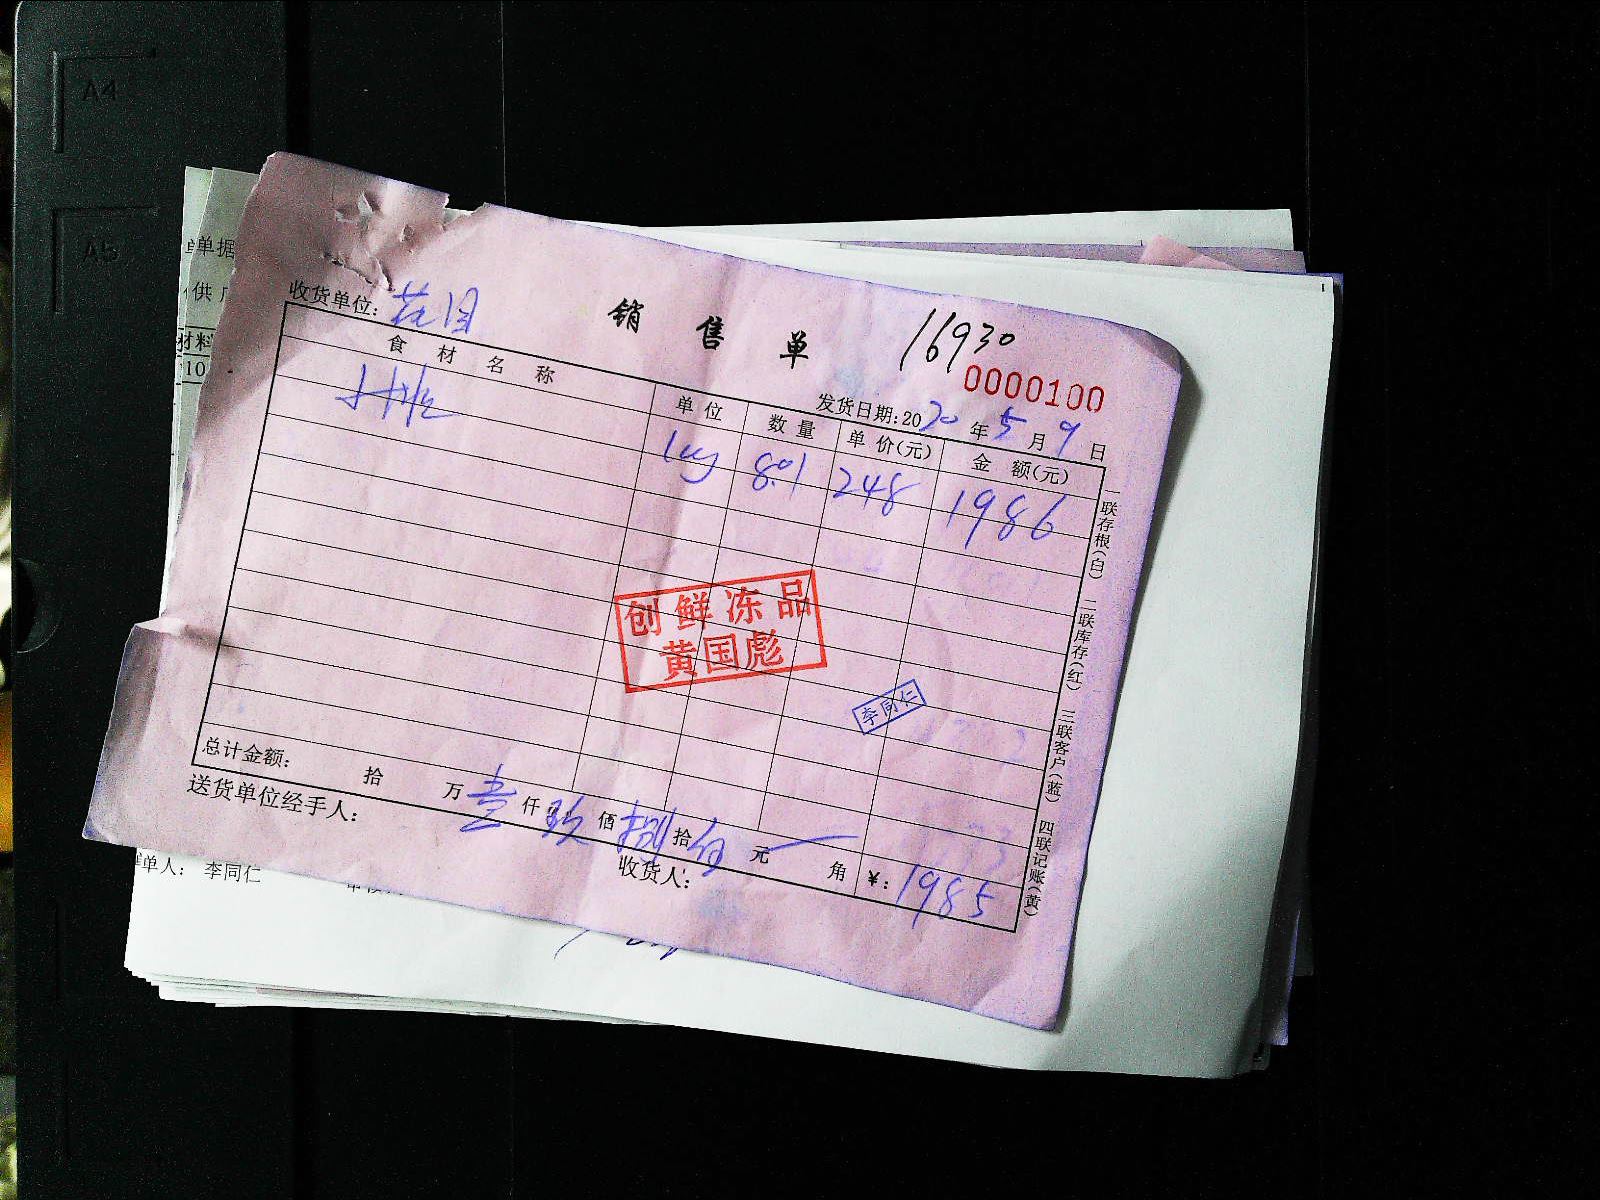 A4
A5
单据
供
材料
10
收货单位: 花园
销售单
16930
0000100
发货日期: 2020年5月9日
食材名称
单位
数量
单价(元)
金额(元)
kg
8.01
248
1986
创鲜冻品
黄国彪
李同仁
总计金额: 拾 万 壹仟 玖佰 捌拾 伍元 角 ¥: 1985
送货单位经手人:
收货人:
一联存根(白) 二联库存(红) 三联客户(蓝) 四联记账(黄)
单人: 李同仁